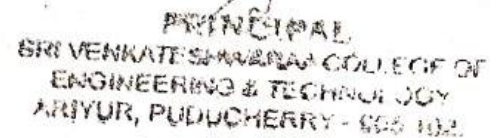 PRINCIPAL
SRI VENKATESHWARAA COLLEGE OF
ENGINEERING & TECHNOLOGY
ARIYUR, PUDUCHERRY - 605 102.